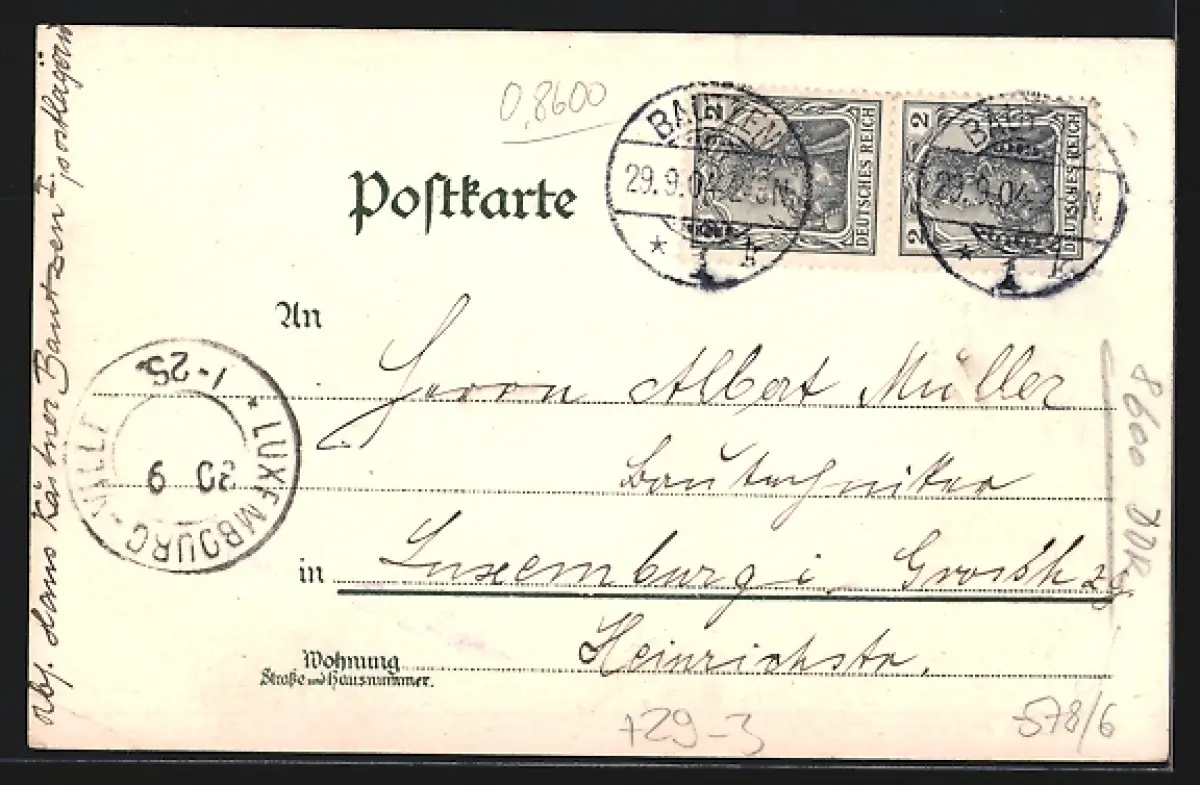 0,8600
Postkarte
2 DEUTSCHES REICH
2 2 DEUTSCHES REICH
BAUTZEN
29.9.04. 2-3N.
* 1 k
BAUTZEN
29.9.04. 2-3N.
* 1 k
An
Herrn Albert Müller
Bautechniker
in Luxemburg i. Grosshzg.
Heinrichstr.
Wohnung
Straße und Hausnummer.
* LUXEMBOURG-VILLE
1-2S.
30 9
Abs. Hans Kästner Bautzen I, postlagernd
8600
+29-3
-578/6